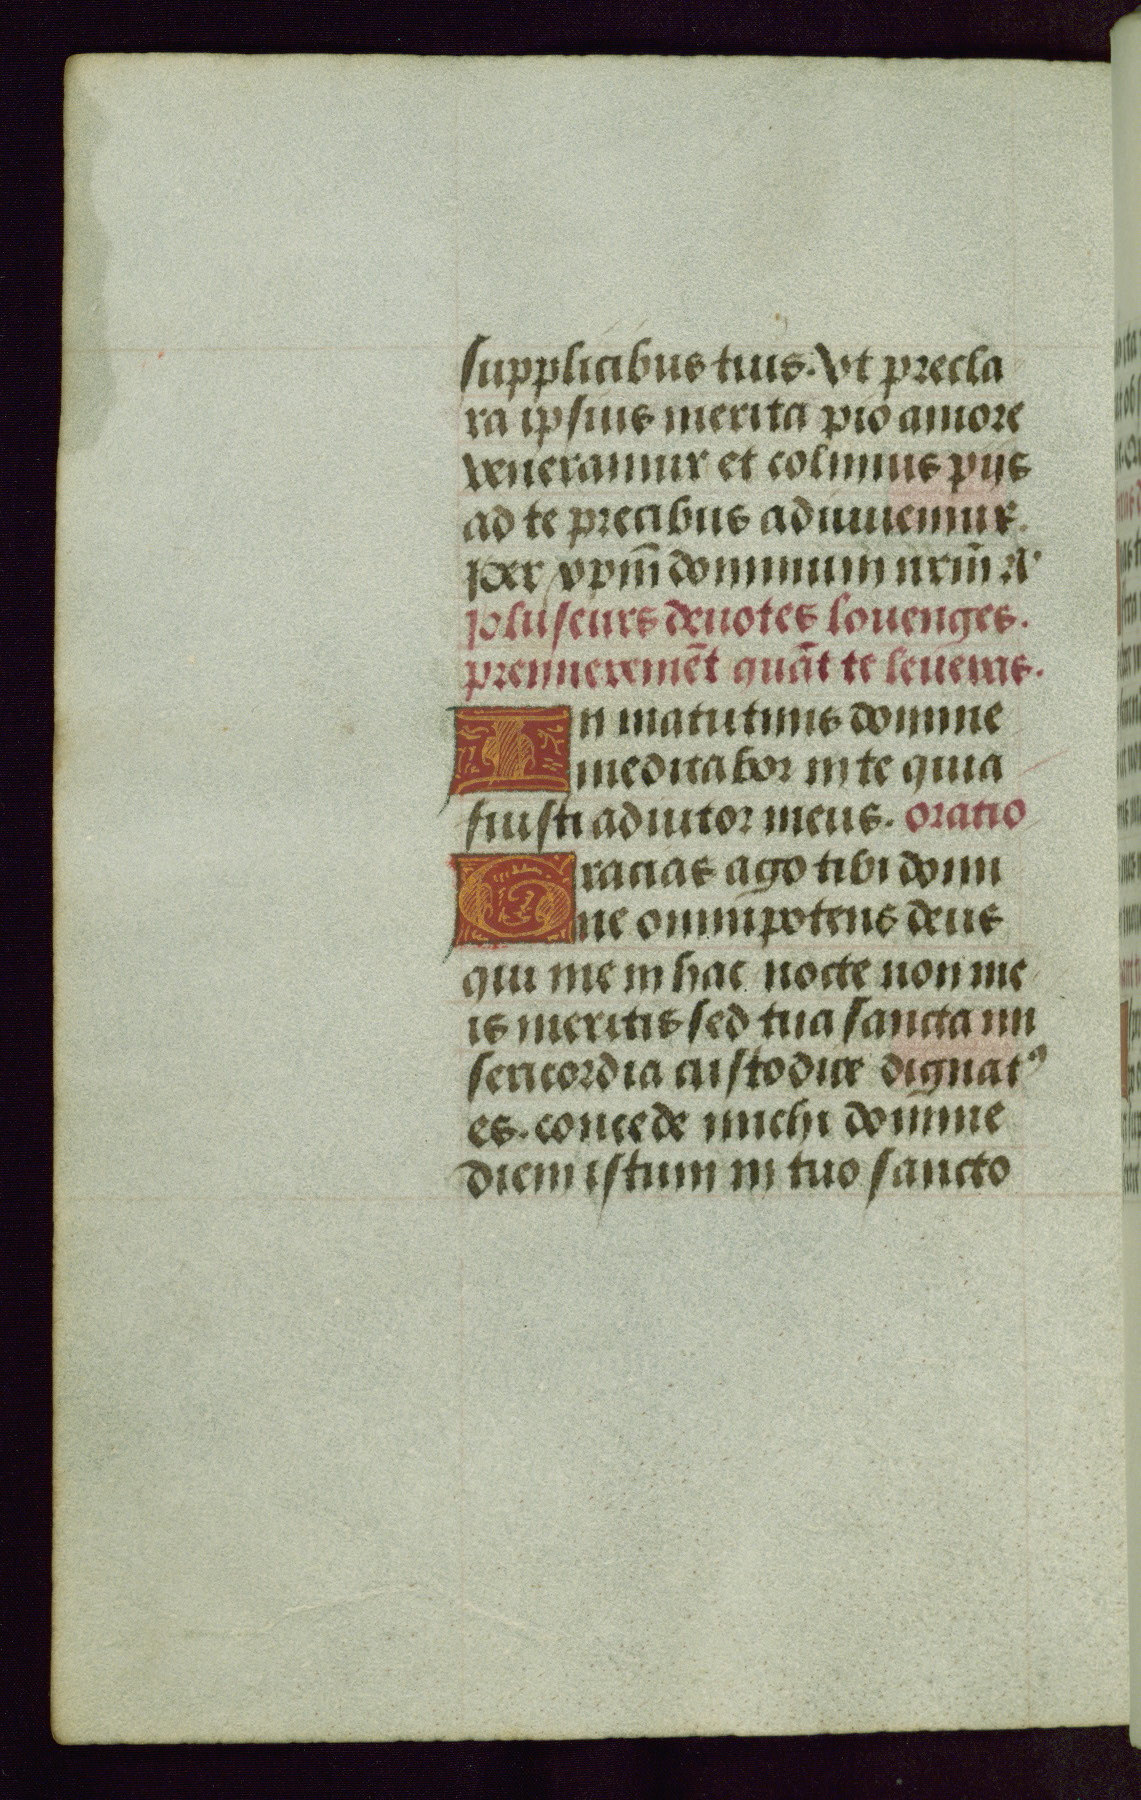 supplicibus tuis. Vt precla
ra ipsius merita pio amore
veneramur et colimus pijs
ad te precibus adiuuemur.
Per xpm̄ dominum nrm̄ ⁊c
Pluseurs deuotes louenges.
premieremēt quāt te leueras.
In matutinis domine
meditabor in te quia
fuisti adiutor meus. oratio
Gracias ago tibi domi
ne omnipotens deus
qui me in hac nocte non me
is meritis sed tua sancta mi
sericordia custodire dignatꝰ
es. concede michi domine
diem istum in tuo sancto